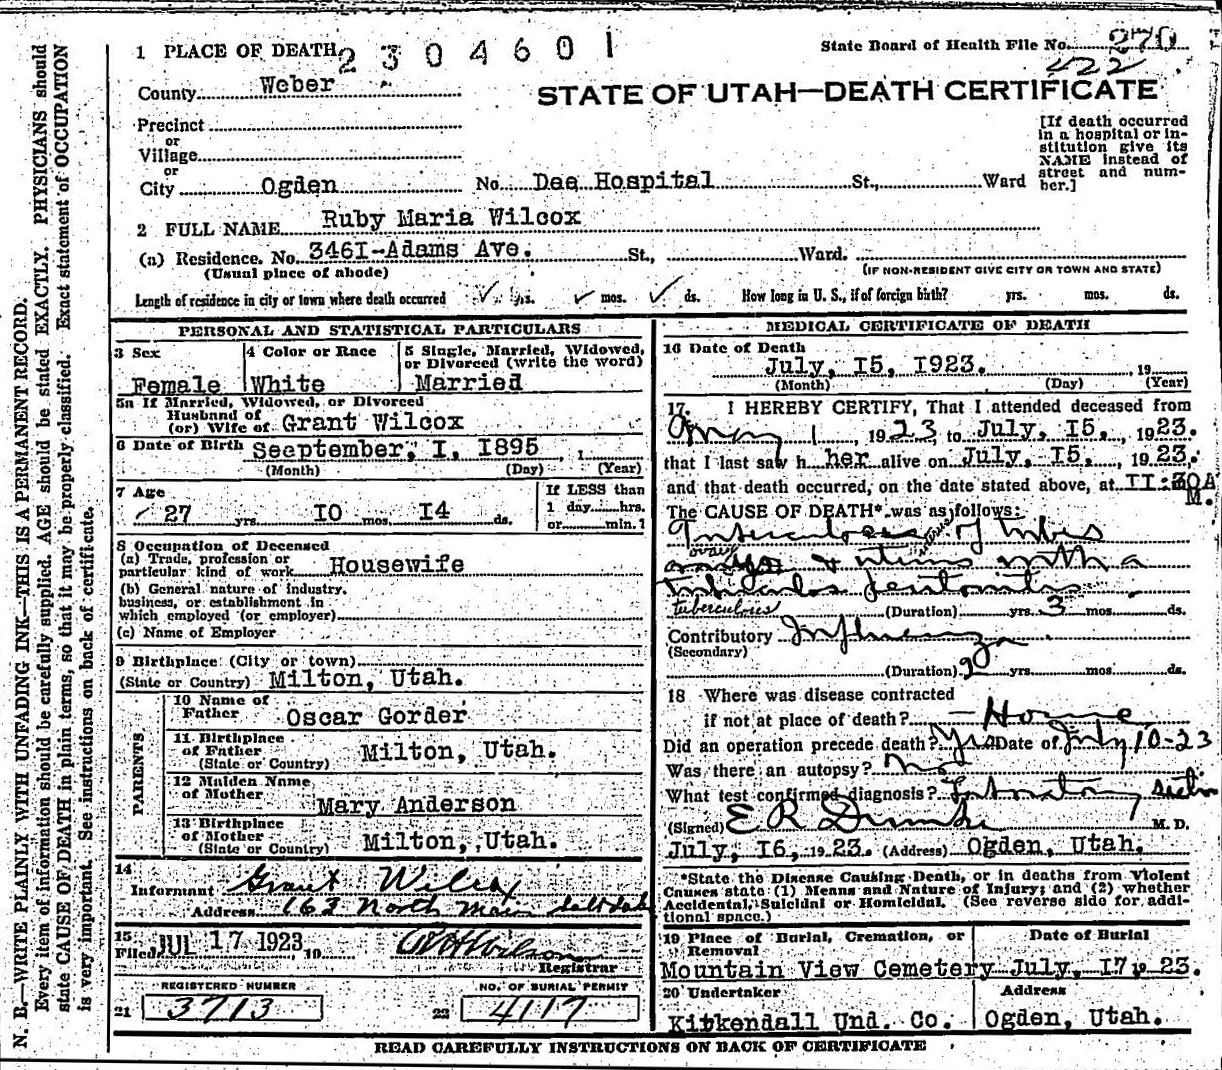 1 PLACE OF DEATH
2304601
State Board of Health File No. 270
422
County Weber
STATE OF UTAH—DEATH CERTIFICATE
Precinct
or
Village
or
City Ogden No. Dee Hospital St., Ward
[If death occurred
in a hospital or in-
stitution give its
NAME instead of
street and num-
ber.]
2 FULL NAME Ruby Maria Wilcox
(a) Residence. No. 346I-Adams Ave. St., Ward.
(Usual place of abode) (IF NON-RESIDENT GIVE CITY OR TOWN AND STATE)
Length of residence in city or town where death occurred ✓ yrs. ✓ mos. ✓ ds. How long in U. S., if of foreign birth? yrs. mos. ds.
PERSONAL AND STATISTICAL PARTICULARS
3 Sex
Female
4 Color or Race
White
5 Single, Married, Widowed,
or Divorced (write the word)
Married
5a If Married, Widowed, or Divorced
Husband of
(or) Wife of Grant Wilcox
6 Date of Birth Seeptember, I, I895 , 1
(Month) (Day) (Year)
7 Age
27 yrs. IO mos. I4 ds.
If LESS than
1 day hrs.
or min.?
8 Occupation of Deceased
(a) Trade, profession or
particular kind of work Housewife
(b) General nature of industry,
business, or establishment in
which employed (or employer)
(c) Name of Employer
9 Birthplace (City or town)
(State or Country) Milton, Utah.
PARENTS
10 Name of
Father Oscar Gorder
11 Birthplace
of Father Milton, Utah.
(State or Country)
12 Maiden Name
of Mother
Mary Anderson
13 Birthplace
of Mother Milton, Utah.
(State or Country)
14
Informant Grant Wilcox
Address 163 North Main Salt Lake
15
Filed JUL 17 1923, 19
Registrar
REGISTERED NUMBER
21 3713
NO. OF BURIAL PERMIT
22 4117
MEDICAL CERTIFICATE OF DEATH
16 Date of Death
July, I5, I923. , 19
(Month) (Day) (Year)
17. I HEREBY CERTIFY, That I attended deceased from
May 1, 1923, to July, I5, , 1923.
that I last saw h her alive on July, I5, , 1923,
and that death occurred, on the date stated above, at II:30A
M.
The CAUSE OF DEATH* was as follows:
Tuberculosis of tubes
ovary & uterus with a
tuberculous peritonitis
tuberculous (Duration) yrs. 3 mos. ds.
Contributory Influenza
(Secondary)
(Duration) yrs. mos. ds.
18 Where was disease contracted
if not at place of death? — Home
Did an operation precede death? Yes Date of July 10-23
Was there an autopsy? No
What test confirmed diagnosis? Laboratory section
(Signed) E R M. D.
July, I6, 1923. (Address) Ogden, Utah.
*State the Disease Causing Death, or in deaths from Violent
Causes state (1) Means and Nature of Injury; and (2) whether
Accidental, Suicidal or Homicidal. (See reverse side for addi-
tional space.)
19 Place of Burial, Cremation, or
Removal
Date of Burial
Mountain View Cemetery July, I7, 23.
20 Undertaker
Kirkendall Und. Co.
Address
Ogden, Utah.
READ CAREFULLY INSTRUCTIONS ON BACK OF CERTIFICATE
N. B.—WRITE PLAINLY WITH UNFADING INK—THIS IS A PERMANENT RECORD.
Every item of information should be carefully supplied. AGE should be stated EXACTLY. PHYSICIANS should
state CAUSE OF DEATH in plain terms, so that it may be properly classified. Exact statement of OCCUPATION
is very important. See instructions on back of certificate.